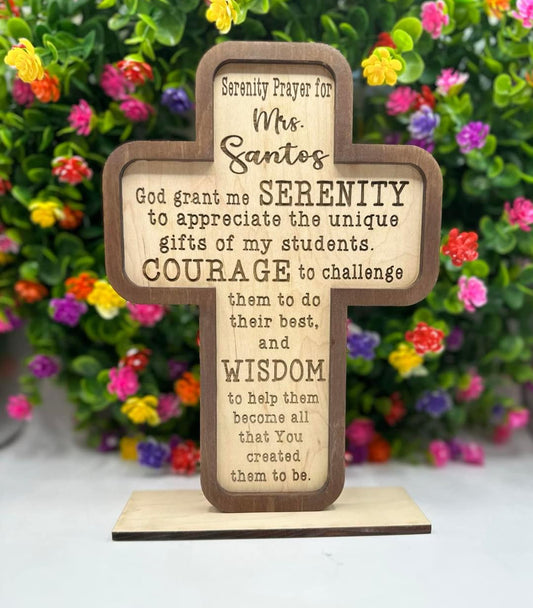 Serenity Prayer for
Mrs.
Santos
God grant me SERENITY
to appreciate the unique
gifts of my students.
COURAGE to challenge
them to do
their best,
and
WISDOM
to help them
become all
that You
created
them to be.